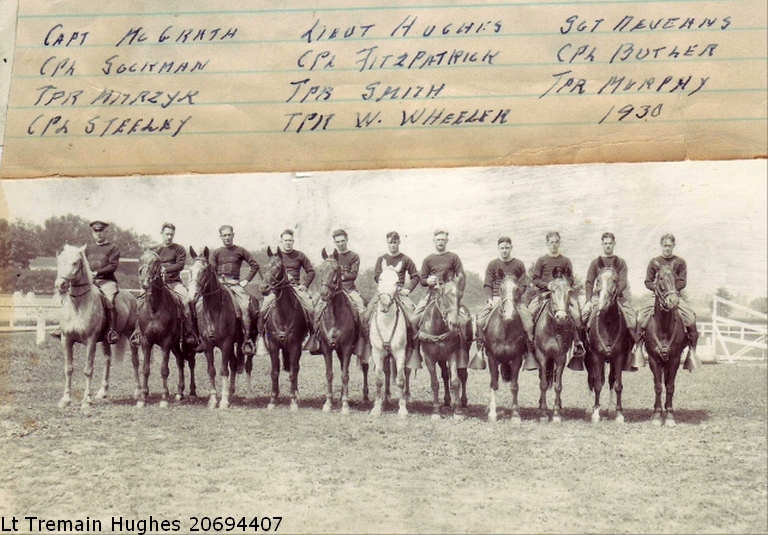 CAPT McGRATH LIEUT HUGHES SGT NEVEANS
CPL SOCKMAN CPL FITZPATRICK CPL BUTLER
TPR TPR SMITH TPR MURPHY
CPL STEELEY TPR W. WHEELER 1930
Lt Tremain Hughes 20694407